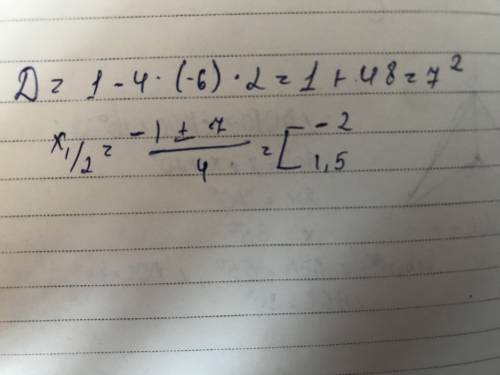 D = 1 - 4 · (-6) · 2 = 1 + 48 = 7²
x₁/₂ = (-1 ± 7)/4 = [ -2
1,5